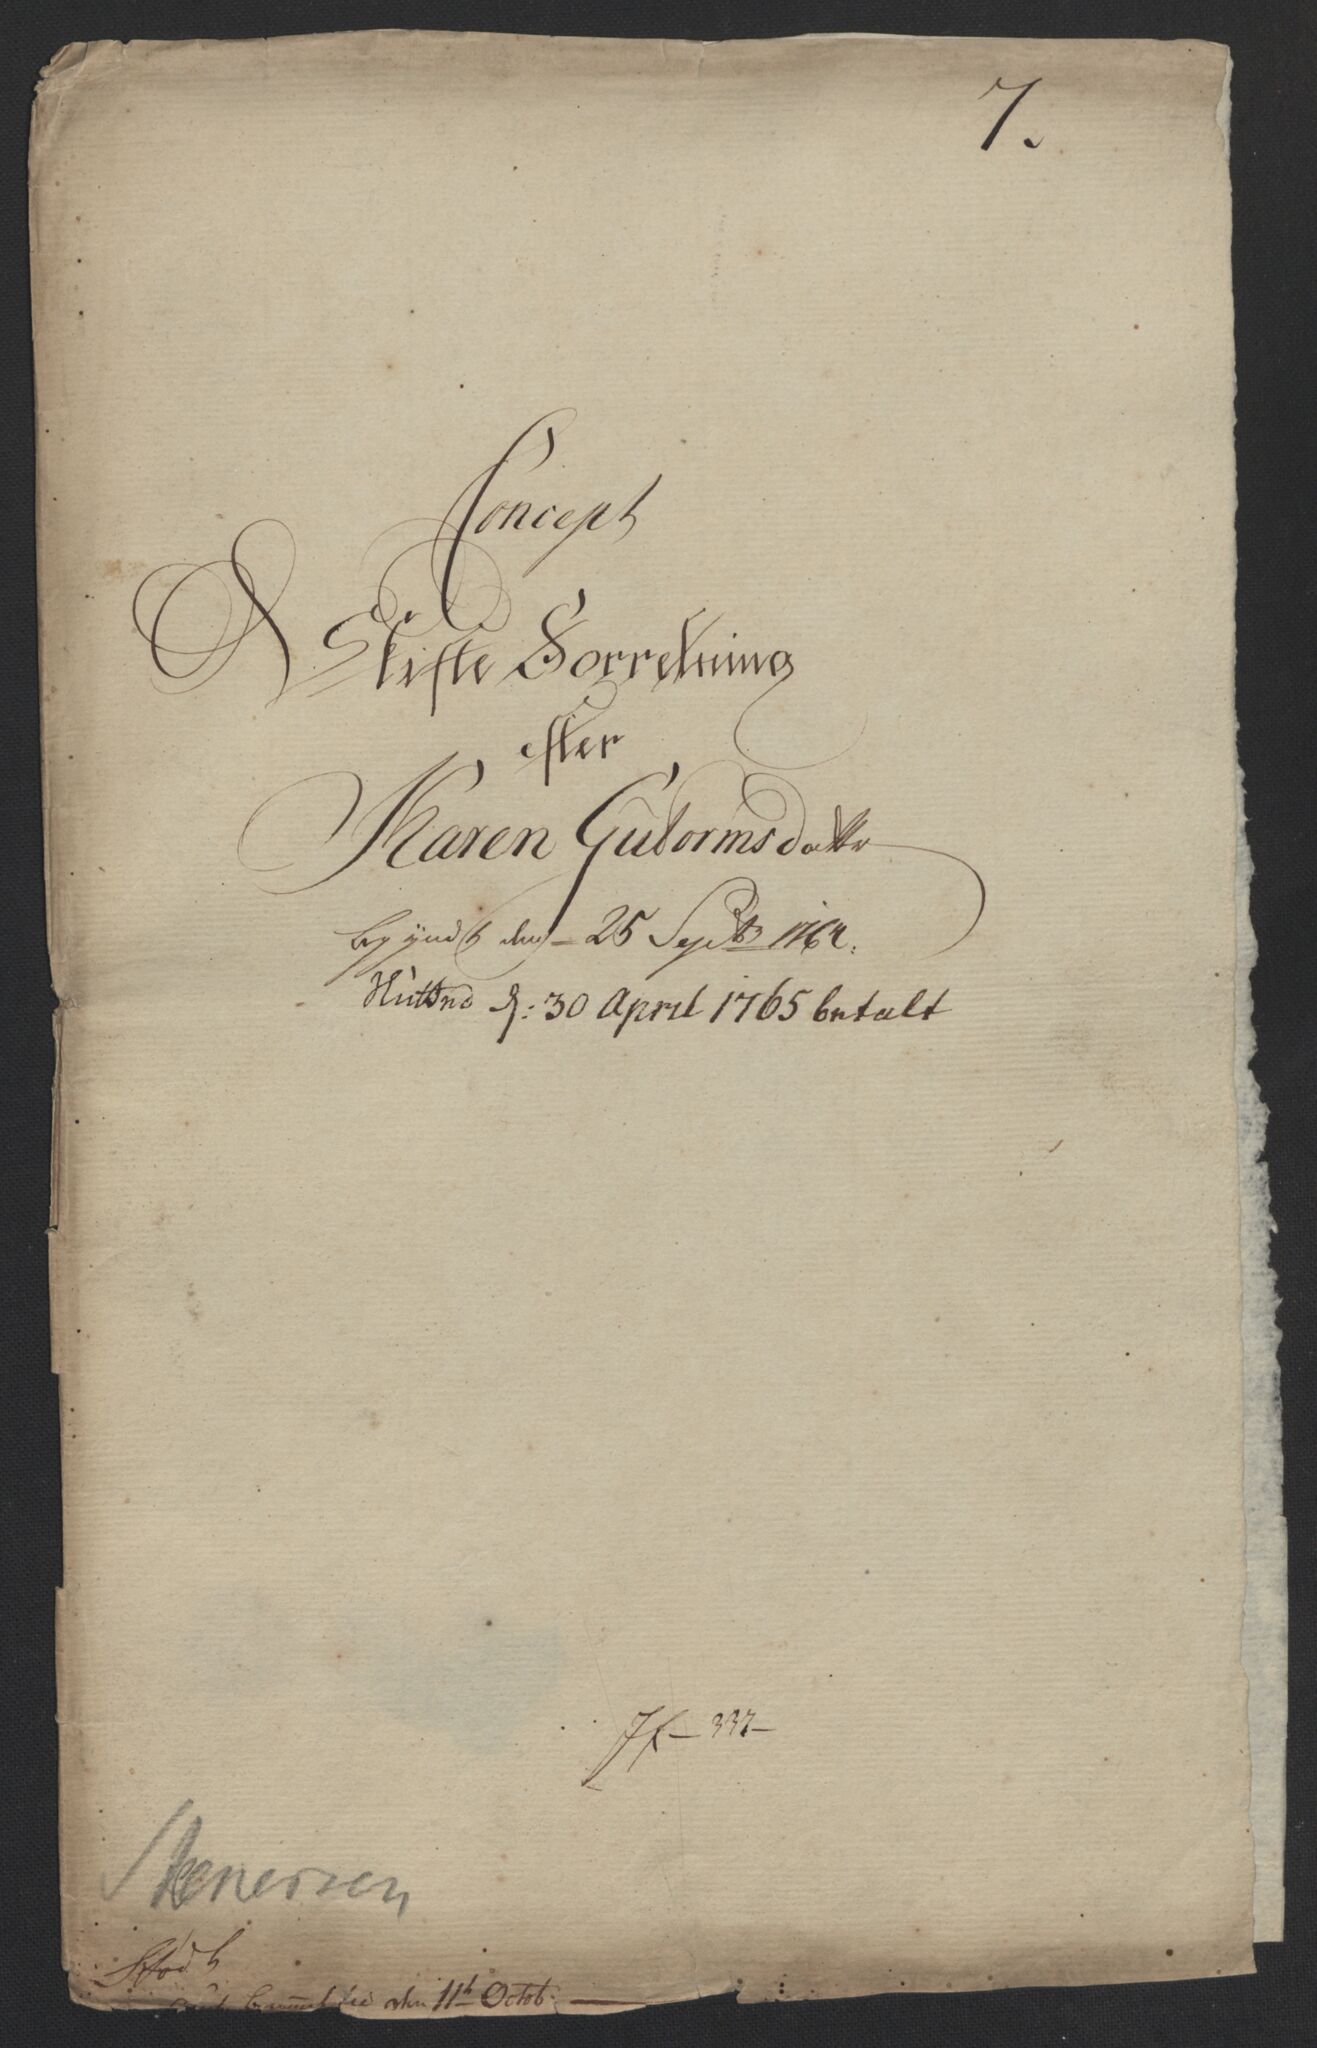 7.
Concept
Skifte Forretning
efter
Karen Gutormsdatter
begyndt den 25 Septb 1764.
Sluttned d: 30 April 1765 betalt
7 f - 337 -
Stenersen
den 11t Octob: